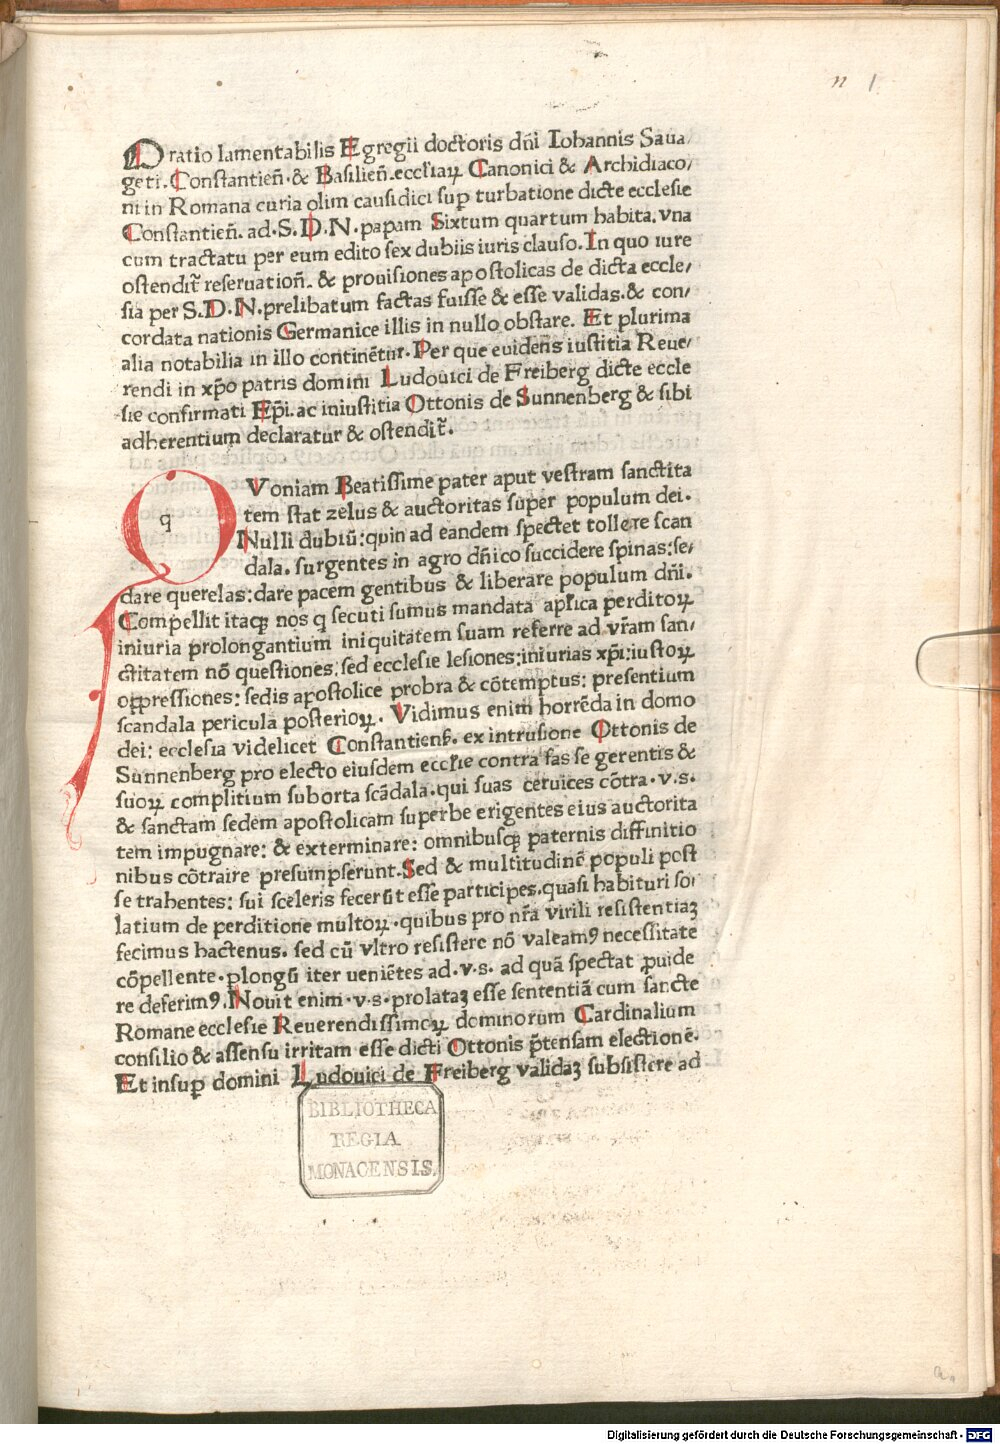 n 1
Oratio lamentabilis Egregii doctoris dñi Iohannis Saua/
geti. Constantieñ. & Basilieñ. eccl'iaꝝ Canonici & Archidiaco/
ni in Romana curia olim causidici sup turbatione dicte ecclesie
Constantieñ. ad. S. D. N. papam Sixtum quartum habita. vna
cum tractatu per eum edito sex dubiis iuris clauso. In quo iure
ostendit̃ reseruatioñ. & prouisiones apostolicas de dicta eccle/
sia per S. D. N. prelibatum factas fuisse & esse validas. & con/
cordata nationis Germanice illis in nullo obstare. Et plurima
alia notabilia in illo continẽtur. Per que euidens iustitia Reue/
rendi in xp̃o patris domini Ludouici de Freiberg dicte eccle
sie confirmati Ep̃i. ac iniustitia Ottonis de Sunnenberg & sibi
adherentium declaratur & ostendit̃.
q
QVoniam Beatissime pater aput vestram sanctita
tem stat zelus & auctoritas super populum dei.
Nulli dubiũ: quin ad eandem spectet tollere scan
dala. surgentes in agro dñico succidere spinas: se/
dare querelas: dare pacem gentibus & liberare populum dñi.
Compellit itaqꝫ nos q secuti sumus mandata apl'ica perditoꝝ
iniuria prolongantium iniquitatem suam referre ad vr̃am san/
ctitatem nõ questiones: sed ecclesie lesiones: iniurias xp̃i: iustoꝝ
oppressiones: sedis apostolice probra & cõtemptus: presentium
scandala pericula posterioꝝ. Vidimus enim horrẽda in domo
dei: ecclesia videlicet Constantiens̃. ex intrusione Ottonis de
Sunnenberg pro electo eiusdem eccl'ie contra fas se gerentis &
suoꝝ complitium suborta scãdala. qui suas ceruices cõtra. v. s.
& sanctam sedem apostolicam superbe erigentes eius auctorita
tem impugnare: & exterminare: omnibusqꝫ paternis diffinitio
nibus cõtraire presumpserunt. Sed & multitudinẽ populi post
se trahentes: sui sceleris fecerũt esse participes. quasi habituri so/
latium de perditione multoꝝ. quibus pro nr̃a virili resistentiaꝫ
fecimus hactenus. sed cũ vltro resistere nõ valeamꝰ necessitate
cõpellente. ꝓlongũ iter ueniẽtes ad. v. s. ad quã spectat ꝓuide
re deferimꝰ. Nouit enim. v. s. prolataꝫ esse sententiã cum sancte
Romane ecclesie Reuerendissimoꝝ dominorum Cardinalium
consilio & assensu irritam esse dicti Ottonis p̃tensam electionẽ.
Et insuꝑ domini Ludouici de Freiberg validaꝫ subsistere ad
BIBLIOTHECA
REGIA
MONACENSIS.
Digitalisierung gefördert durch die Deutsche Forschungsgemeinschaft - DFG